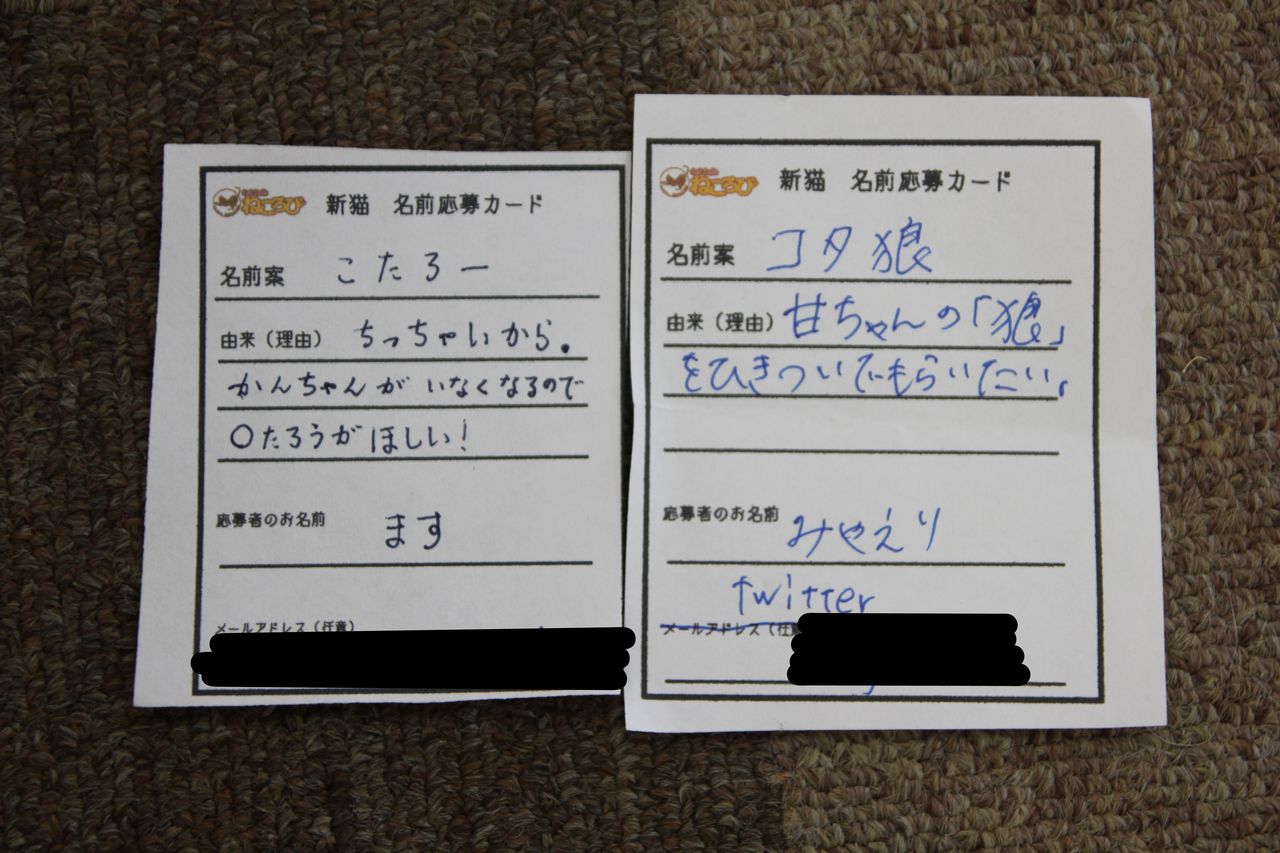 ねころび
新猫 名前応募カード
名前案 こたろー
由来(理由) ちっちゃいから。
かんちゃんがいなくなるので
〇たろうがほしい!
応募者のお名前 ます
メールアドレス(任意)
ねころび
新猫 名前応募カード
名前案 コタ狼
由来(理由) 甘ちゃんの「狼」
をひきついでもらいたい。
応募者のお名前 みやえり
twitter
メールアドレス(任意